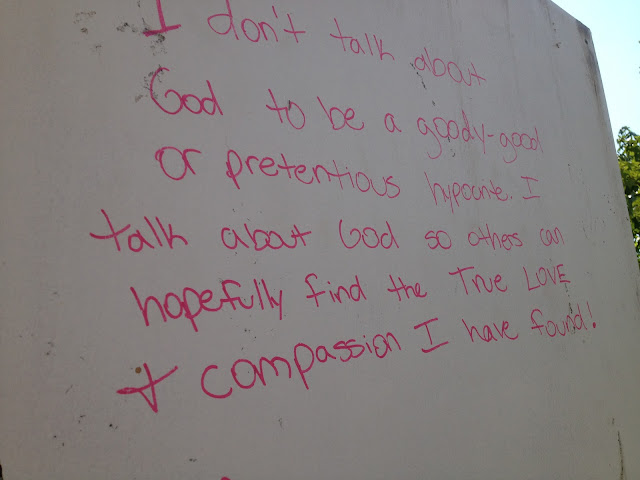 I don't talk about
God to be a goody-good
or pretentious hypocrite. I
talk about God so others can
hopefully find the True LOVE
+ compassion I have found!